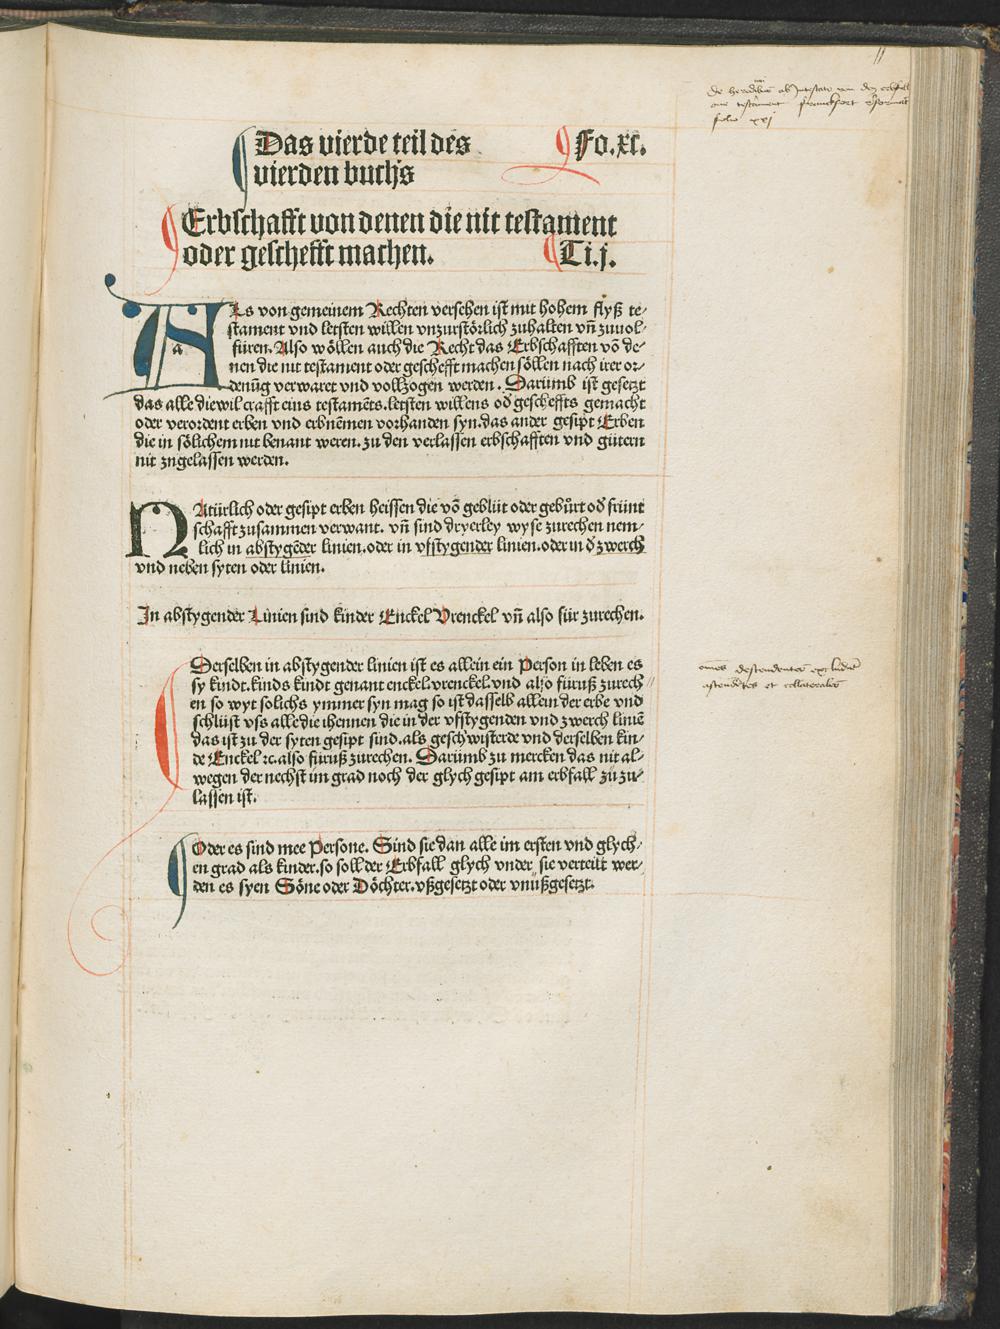 de heredibus ab intestato von den erbfall
one testament franckfort reformat
folio xxj
Das vierde teil des
vierden buchs
Fo.xc.
Erbschafft von denen die nit testament
oder geschefft machen.
Ti.j.
Als von gemeinem Rechten versehen ist mit hohem flyß te-
stament vnd letsten willen vnzurstörlich zuhalten vn̄ zuuol-
füren. Also wöllen auch die Recht das Erbschafften vō de-
nen die nit testament oder geschefft machen söllen nach irer or-
denūg verwaret vnd vollzogen werden. Darumb ist gesetzt
das alle diewil crafft eins testamēts. letsten willens od̄ gescheffts gemacht
oder verordent erben vnd erbnēmen vorhanden syn. das ander gesipt Erben
die in sölichem nit benant weren. zu den verlassen erbschafften vnd gütern
nit zngelassen werden.
Natürlich oder gesipt erben heissen die vō geblüt oder gebůrt od̄ frünt
schafft zusammen verwant. vn̄ sind dryerley wyse zurechen nem-
lich in abstygēder linien. oder in vfstygender linien. oder in d̄ zwerch
vnd neben syten oder linien.
In abstygender Linien sind kinder Enckel Vrenckel vn̄ also für zurechen.
Derselben in abstygender linien ist es allein ein Person in leben es
sy kindt. kinds kindt genant enckel. vrenckel. vnd also füruß zurech
en so wyt solichs ymmer syn mag so ist dasselb allein der erbe vnd
schlüst vss alle die ihennen die in der vfstygenden vnd zwerch liniē
das ist zu der syten gesipt sind. als geschwisterde vnd derselben kin-
de Enckel ⁊c. also füruß zurechen. Darumb zu mercken das nit al-
wegen der nechst im grad noch der glych gesipt am erbfall zů zu-
lassen ist.
omnes descendentes excludunt
ascendentes et collaterales
Oder es sind mee Persone. Sind sie dan alle im ersten vnd glych-
en grad als kinder. so soll der Erbfall glych vnder sie verteilt wer-
den es syen Söne oder Döchter. vßgesetzt oder vnußgesetzt.